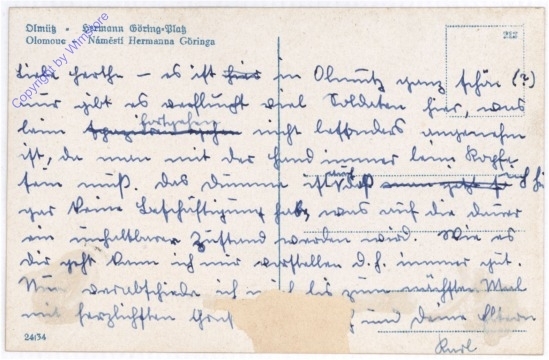 Olmütz - Hermann Göring-Platz
Olomouc - Náměstí Hermanna Göringa
212
Copyright by Wimpstore
Liebe Herthe – es ist hier in Olmütz ganz schön (?)
nur gibt es verflucht viel Soldaten hier, was
beim nicht besonders angenehm
ist, da man mit der Hand immer beim Kopfe
sein muß. Das dumme ist, daß ich hier
gar keine Beschäftigung habe, was auf die Dauer
ein unhaltbarer Zustand werden wird. Wie es
dir geht kann ich mir vorstellen d.h. immer gut.
Nun verabschiede ich mich bis zum nächsten Mal
mit herzlichsten und deine Eltern
Karl
24/34